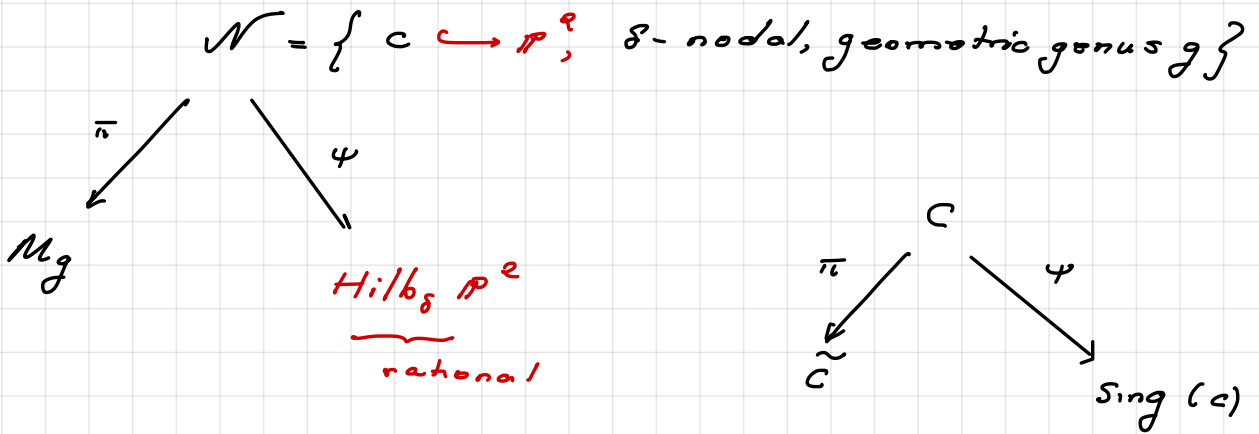 𝒩 = { C ↪ ℙ², δ-nodal, geometric genus g }
π ψ
C
π ψ
M_g
Hilb_δ ℙ²
rational
C̃
Sing (C)